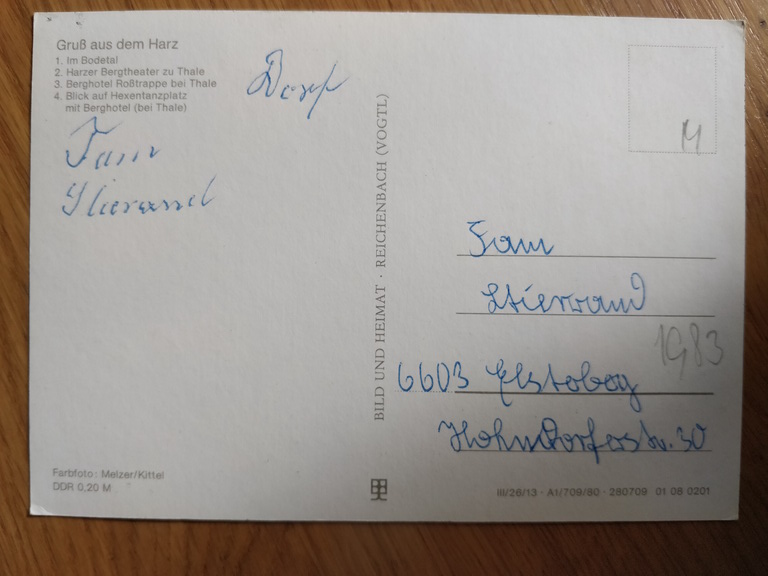 Gruß aus dem Harz
1. Im Bodetal
2. Harzer Bergtheater zu Thale
3. Berghotel Roßtrappe bei Thale
4. Blick auf Hexentanzplatz
mit Berghotel (bei Thale)
Fam
BILD UND HEIMAT · REICHENBACH (VOGTL)
M
Fam
Stierwand
1983
6603 Elsterberg
Hohndorferstr. 30
Farbfoto: Melzer/Kittel
DDR 0,20 M
III/26/13 · A1/709/80 · 280709 01 08 0201